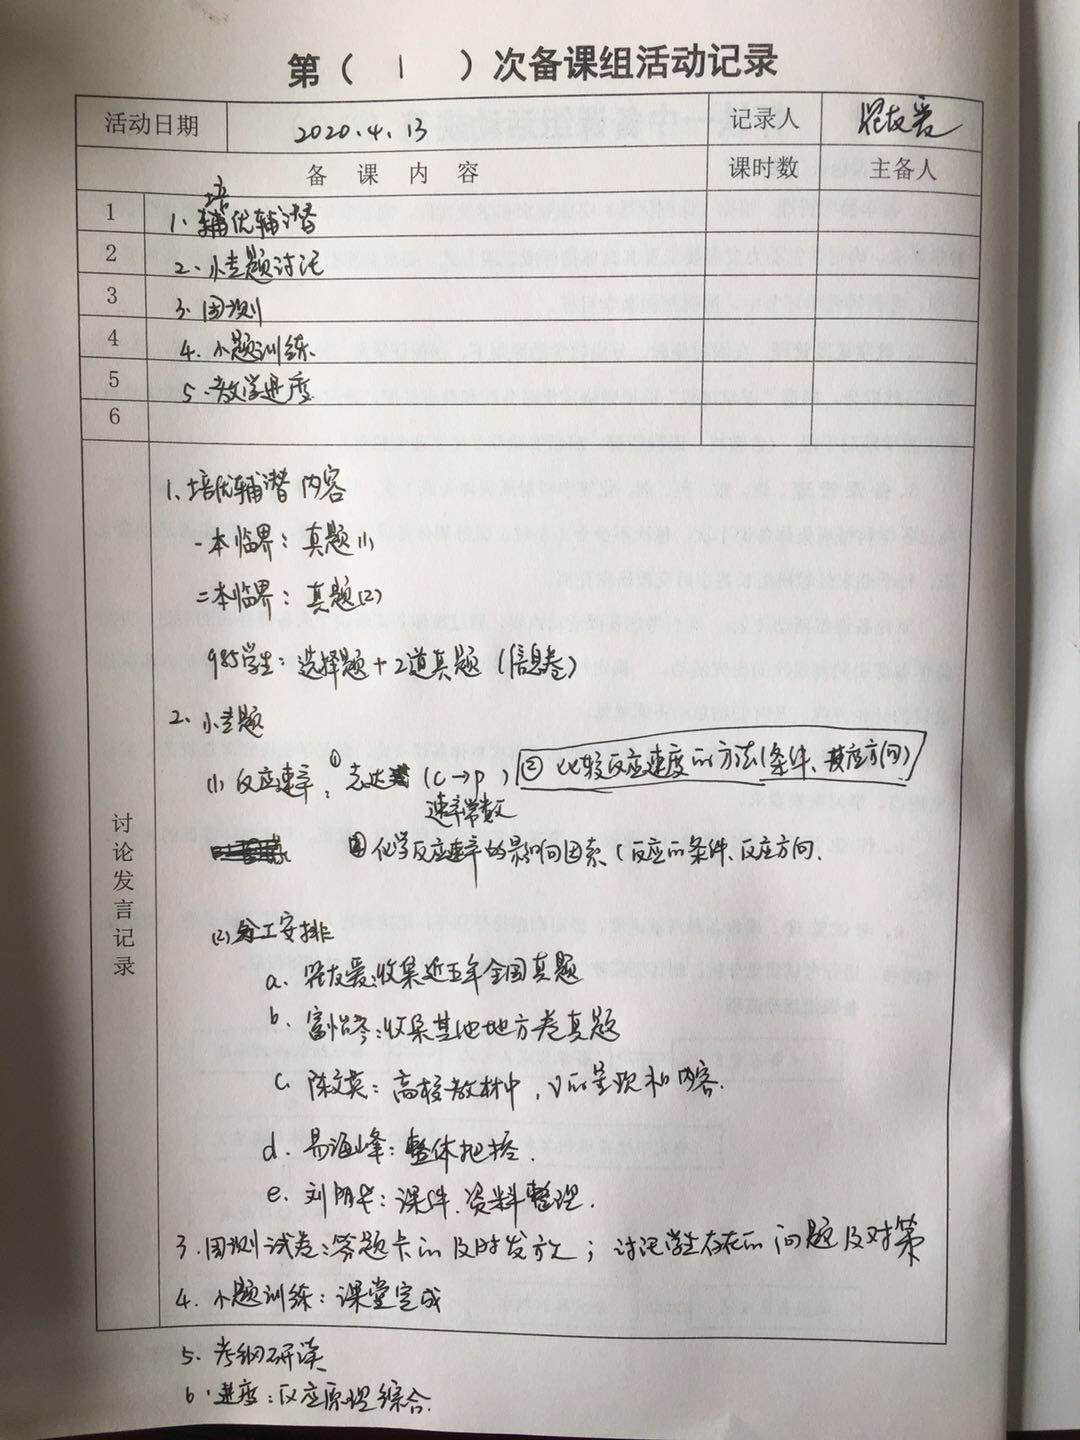 第（ 1 ）次备课组活动记录
活动日期 2020.4.13 记录人 友爱
备课内容 课时数 主备人
1 1、培优辅潜
2 2、小专题讨论
3 3、周测
4 4、小题训练
5 5、教学进度
6
讨论发言记录
1、培优辅潜内容
一本临界：真题(1)
二本临界：真题(2)
985学生：选择题+2道真题（信息卷）
2、小专题
(1) 反应速率：① 表达式（c→p） ② 比较反应速度的方法（条件、反应方向）
速率常数
② 化学反应速率的影响因素（反应的条件、反应方向.
(2) 分工安排
a. 友爱：收集近五年全国真题
b. 富怡：收集其他地方卷真题
c. 陈文英：高校教材中，v的呈现和内容.
d. 易海峰：整体把控.
e. 刘阳华：课件、资料整理.
3. 周测试卷：答题卡的及时发放；讨论学生存在的问题及对策
4. 小题训练：课堂完成
5. 考纲研读
6. 进度：反应原理综合.